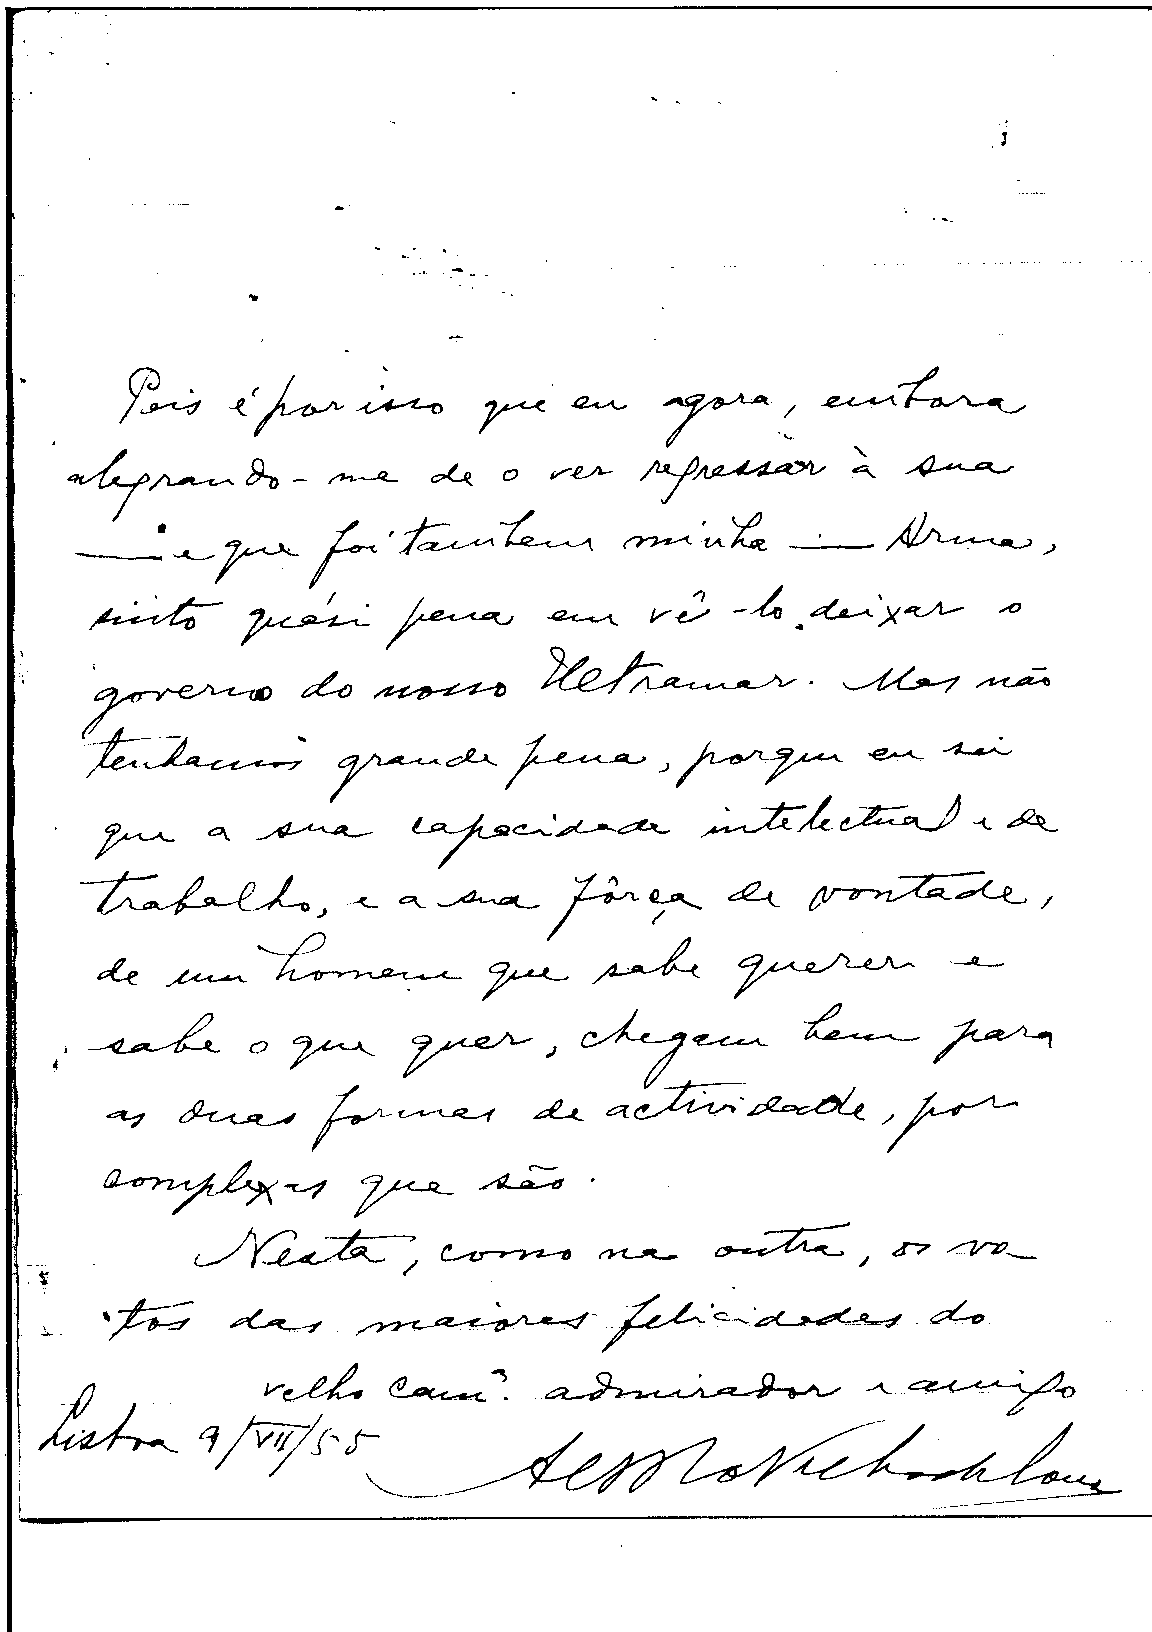 Pois é por isso que eu agora, embora
alegrando-me de o ver regressar à sua
— e que foi tambem minha — Arma,
sinto quási pena em vê-lo deixar o
governo do nosso Ultramar. Mas não
tenhamos grande pena, porque eu sei
que a sua capacidade intelectual e de
trabalho, e a sua fôrça de vontade,
de um homem que sabe querer e
sabe o que quer, chegam bem para
as duas formas de actividade, por
complexas que são.
Nesta, como na outra, os vo
tos das maiores felicidades do
velho cam.ª admirador e amigo
Lisboa 9/VII/55